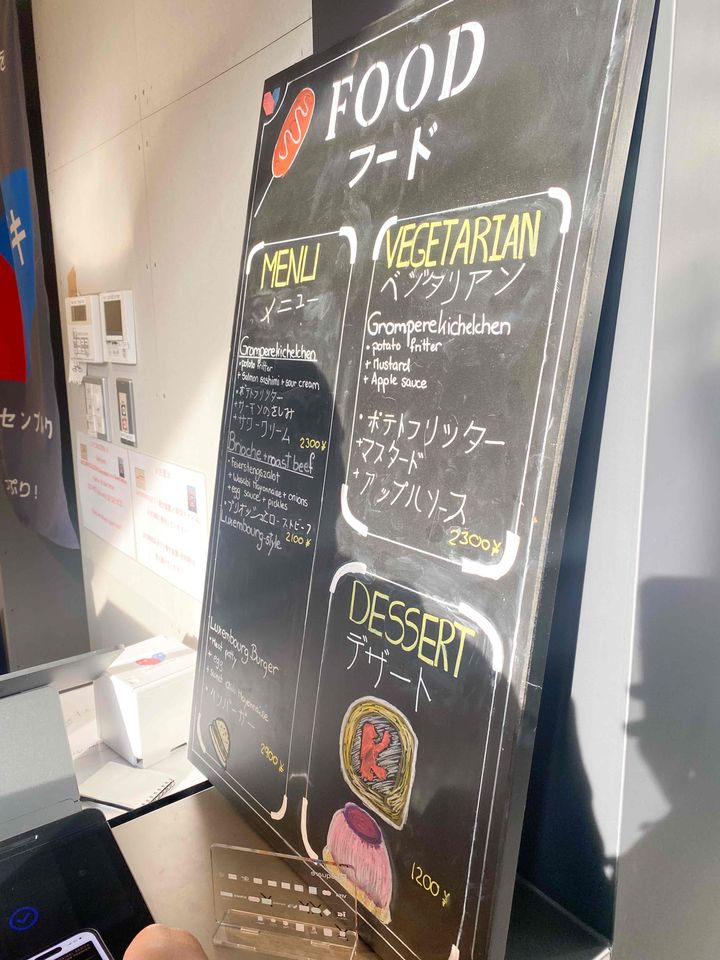 FOOD
フード
MENU
メニュー
Gromperekichelchen
• potato fritter
+ Salmon sashimi + sour cream
• ポテトフリッター
+ サーモンのさしみ
+ サワークリーム
2300¥
Brioche + roast beef
• Feierstengszalot
+ Wasabi Mayonnaise + onions
+ egg sauce + pickles
2100¥
Luxembourg-style
Luxembourg Burger
• Meat patty
+ egg
+ sweet chili Mayonnaise
2900¥
VEGETARIAN
ベジタリアン
Gromperekichelchen
• potato fritter
+ Mustard
+ Apple sauce
• ポテトフリッター
+ マスタード
+ アップルソース
2300¥
DESSERT
デザート
1200¥
キ
センブルク
ぷり!